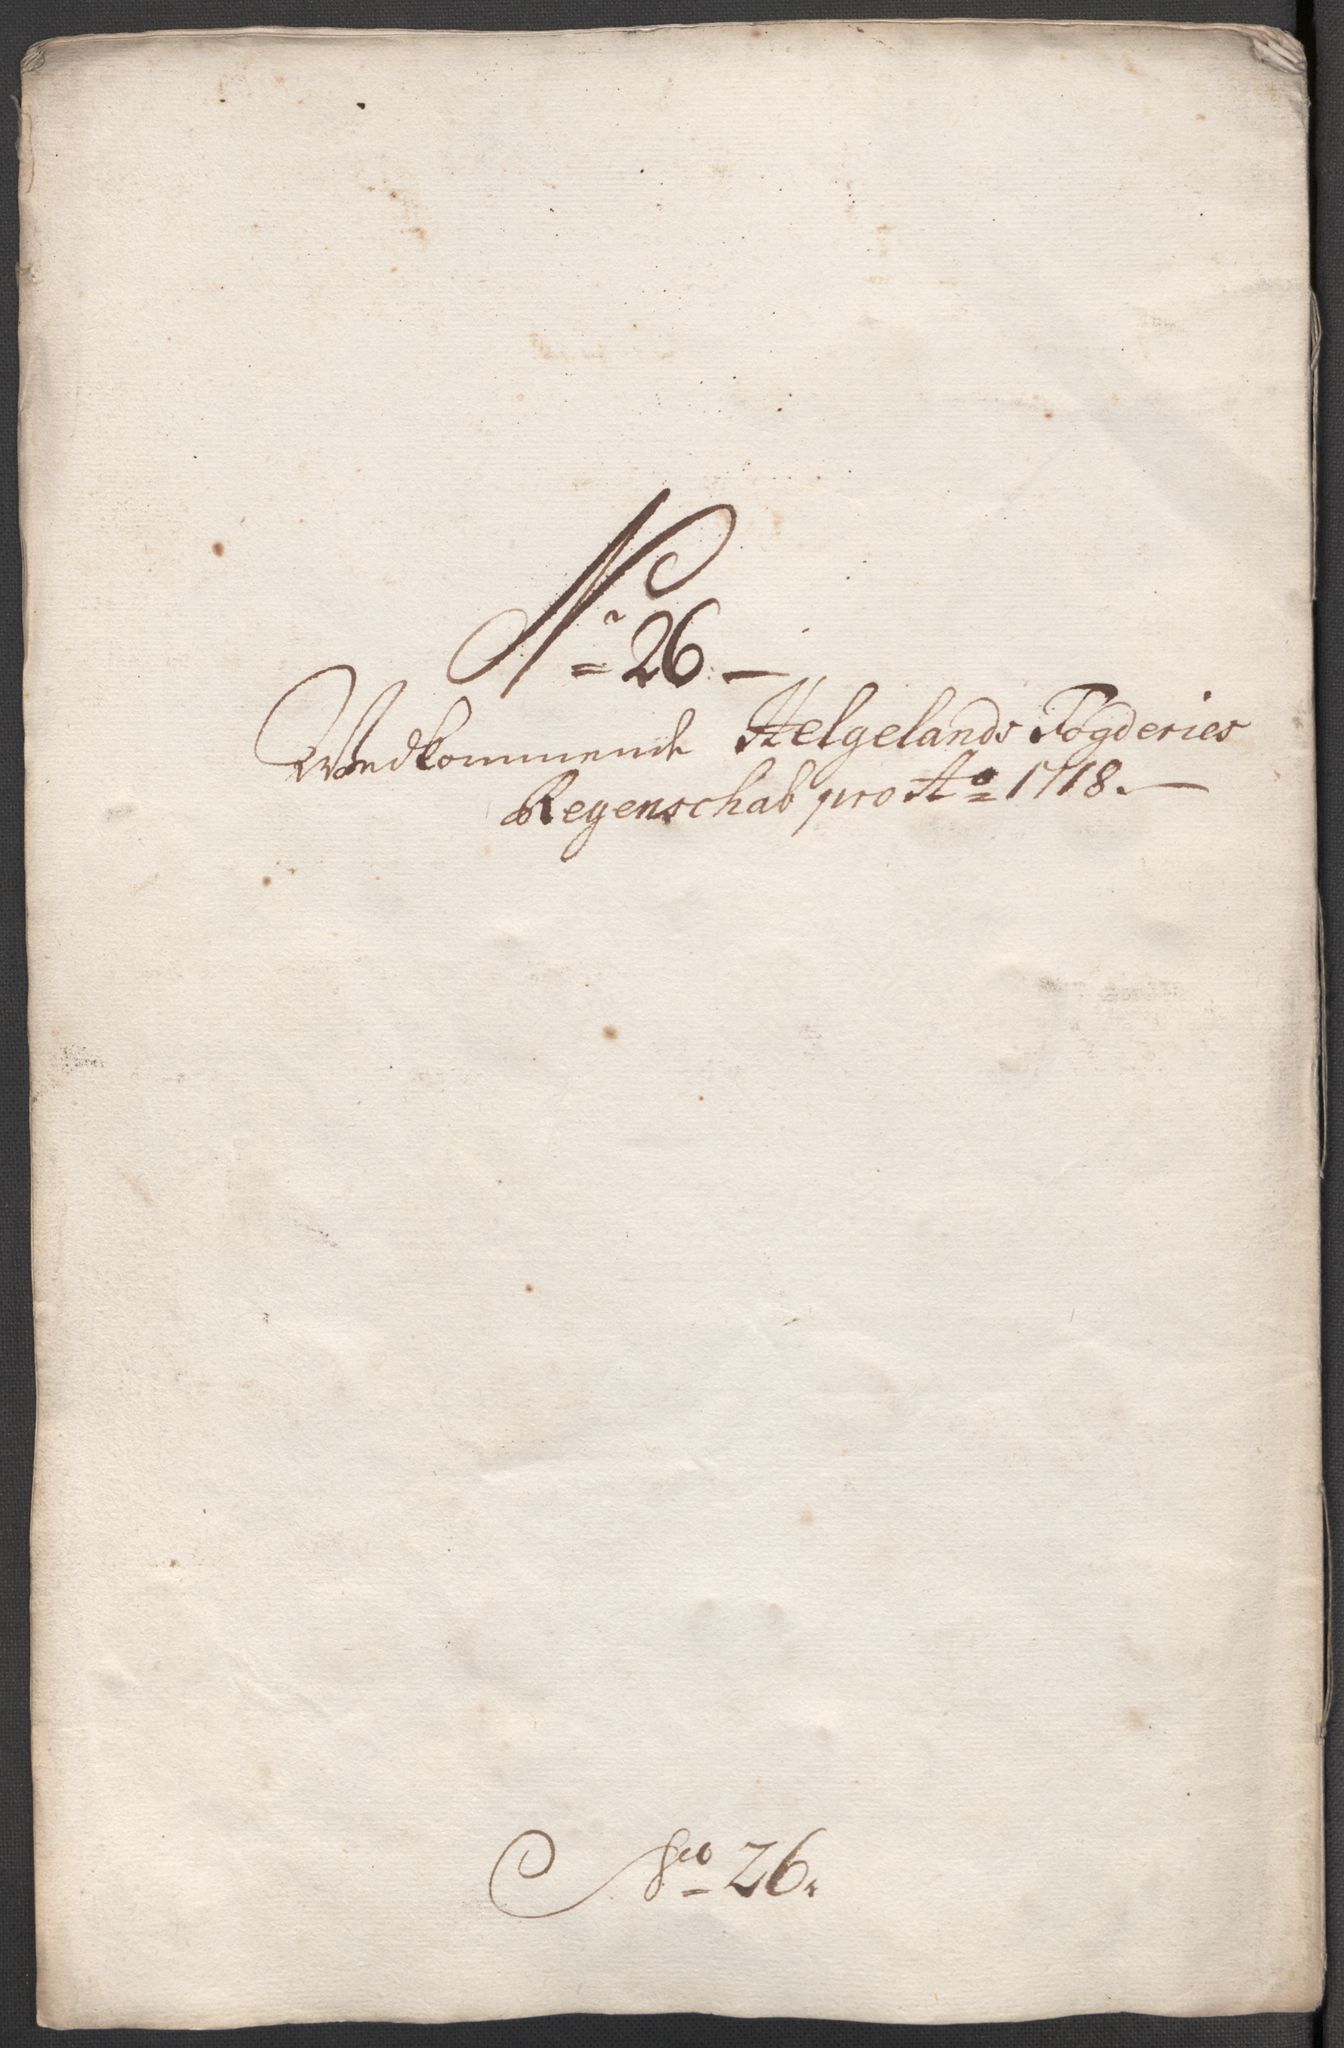 Nr 26.
Wedkommende Helgelands Fogderies
Regenschab pro Ao 1718.
No 26.